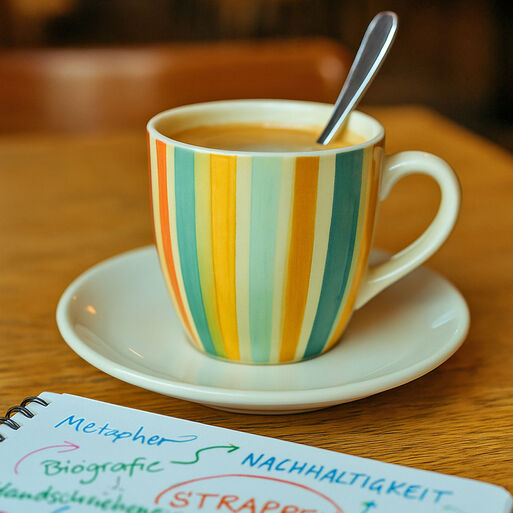 Metapher
Biografic
NACHHALTIGKEIT
Handschriehene